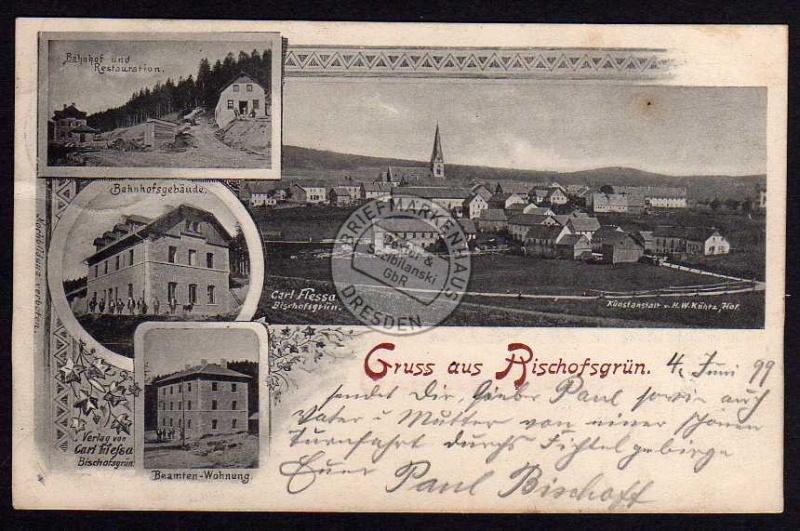 Bahnhof und
Restauration.
Bahnhofsgebäude.
Nachbildung verboten.
Carl Flessa
Bischofsgrün.
Kunstanstalt v. H. W. Köhrs, Hof.
BRIEFMARKENHAUS
Sczibilanski
GbR
DRESDEN
Gruss aus Bischofsgrün. 4. Juni 99
sendet Dir, lieber Paul sowie auch
Vater u Mutter von einer schönen
Turnfahrt durchs Fichtelgebirge
Euer Paul Bischoff
Verlag von
Carl Flessa
Bischofsgrün
Beamten-Wohnung.